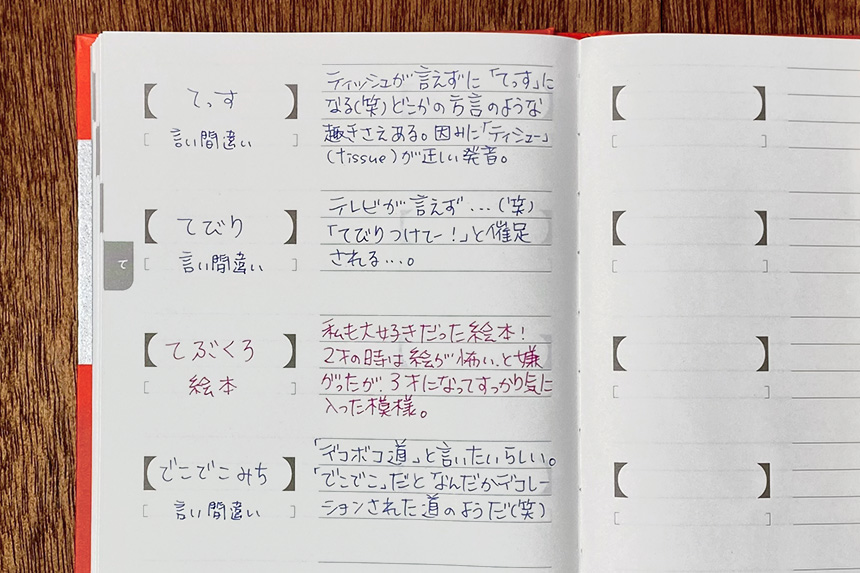 て
てっす
言い間違い
ティッシュが言えずに「てっす」に
なる(笑)どこかの方言のような
趣きさえある。因みに「ティシュー」
(tissue)が正しい発音。
てびり
言い間違い
テレビが言えず…(笑)
「てびりつけてー!」と催促
される…。
てぶくろ
絵本
私も大好きだった絵本!
2才の時は絵が怖い、と嫌
がったが、3才になってすっかり気に
入った模様。
でこでこみち
言い間違い
「デコボコ道」と言いたいらしい。
「でこでこ」だとなんだかデコレー
ションされた道のようだ(笑)